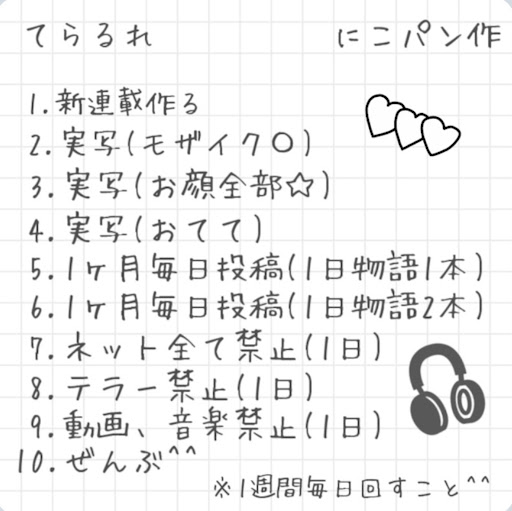 てらるれ にこパン作
1.新連載作る
2.実写(モザイク〇)
3.実写(お顔全部☆)
4.実写(おてて)
5.1ヶ月毎日投稿(1日物語1本)
6.1ヶ月毎日投稿(1日物語2本)
7.ネット全て禁止(1日)
8.テラー禁止(1日)
9.動画、音楽禁止(1日)
10.ぜんぶ^^
※1週間毎日回すこと^^